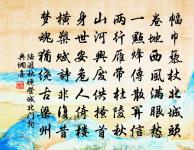 幅巾藜杖北城頭
卷地西風滿眼愁
一點烽傳散關信
兩行雁帶杜陵秋
山河興廢供搔首
身世安危入倚樓
橫槊賦詩非復昔
夢魂猶繞古梁州
陸游秋晚登城北門